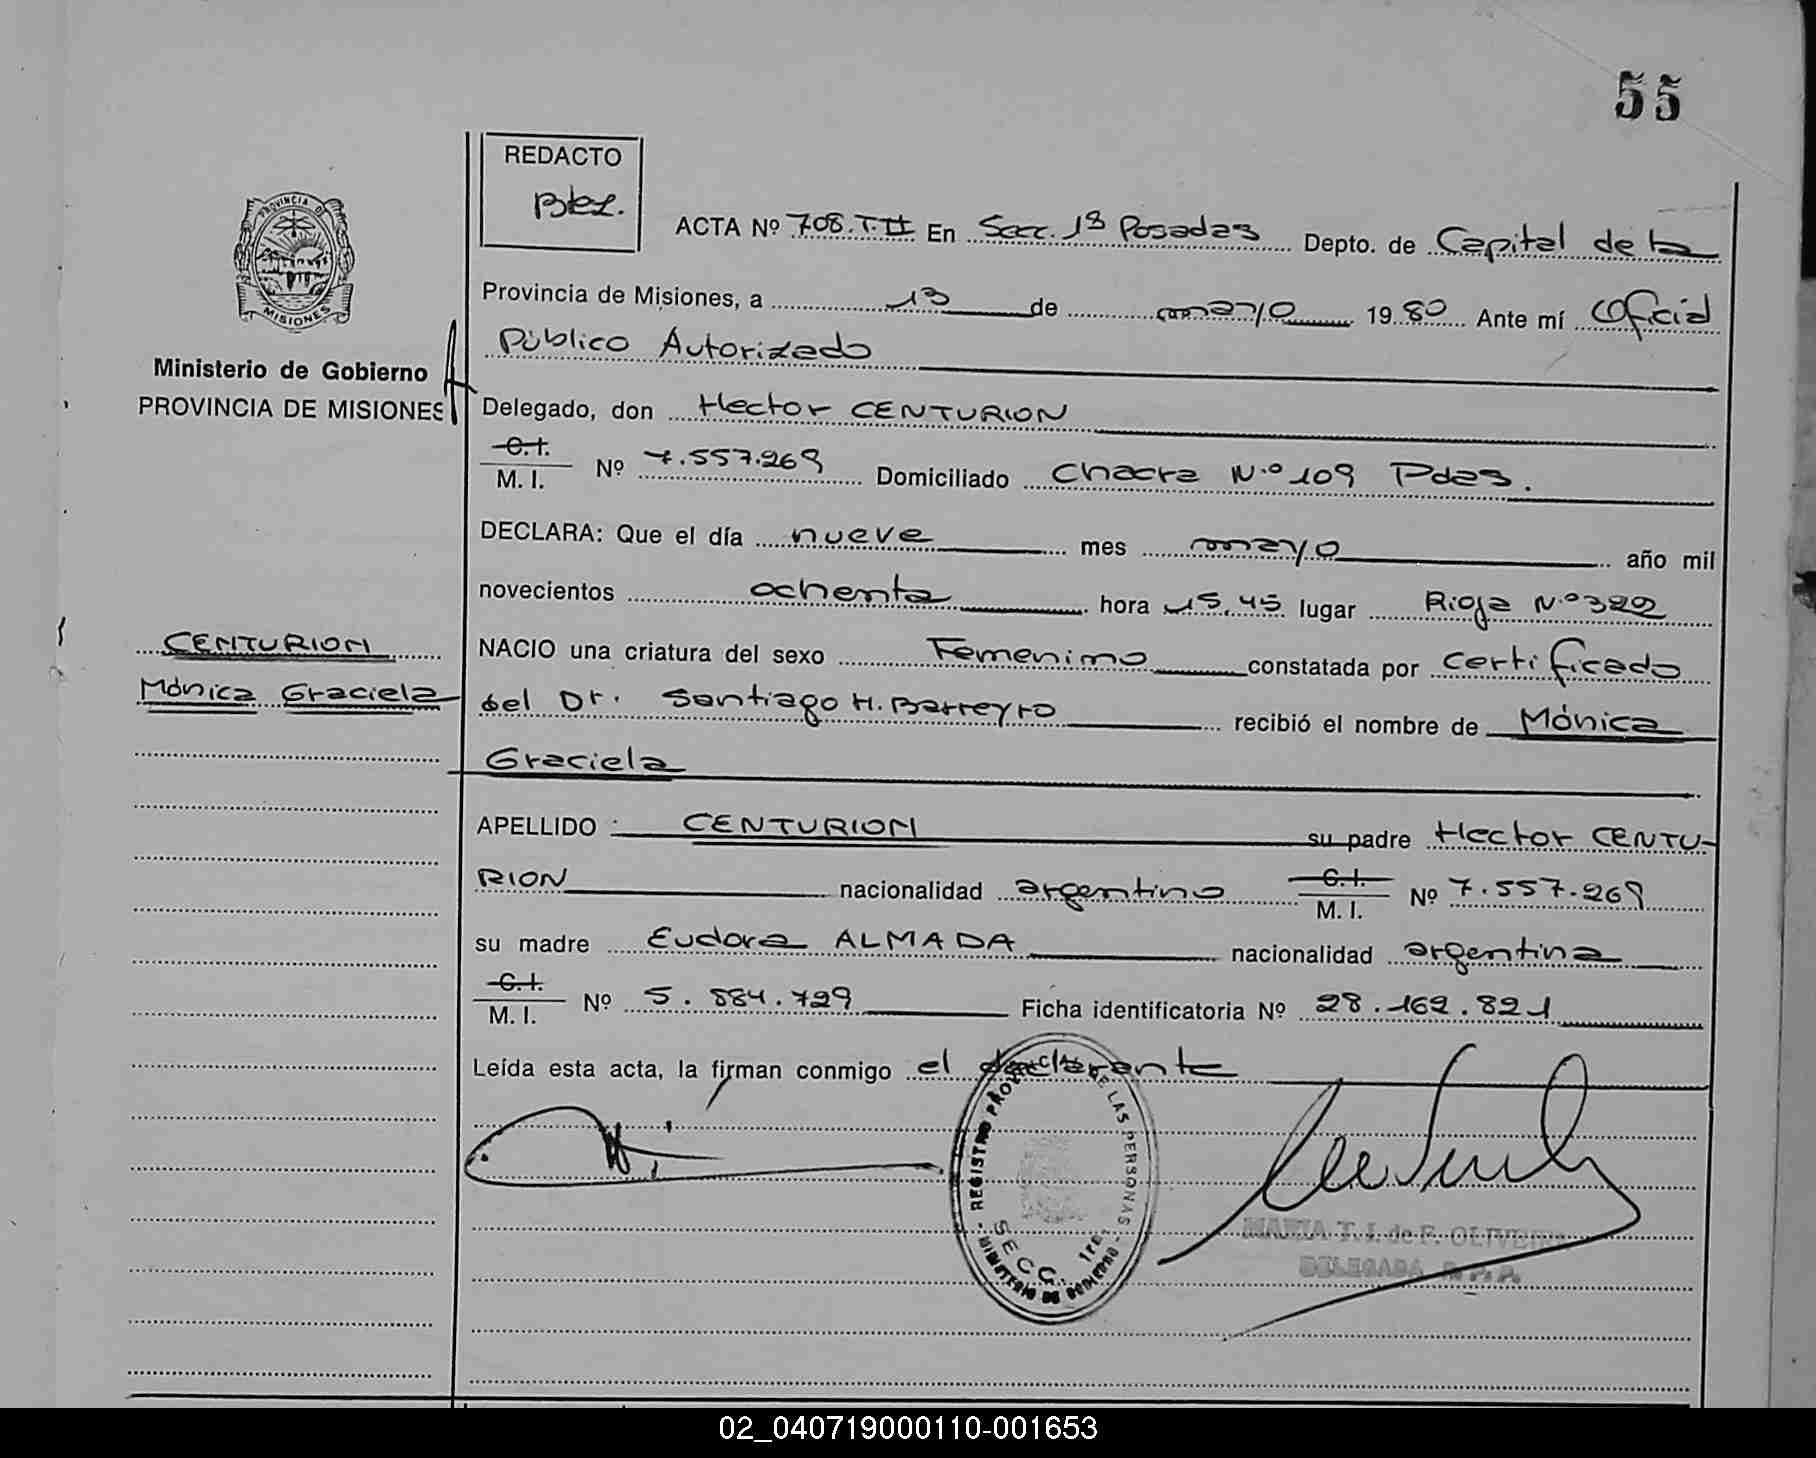 55
REDACTO
Btez.
ACTA Nº 708.T.II En Secc. 1ª Posadas Depto. de Capital de la
Provincia de Misiones, a 13 de mayo 1980 Ante mí Oficial
Público Autorizado
PROVINCIA DE
MISIONES
Ministerio de Gobierno
PROVINCIA DE MISIONES
Delegado, don Hector CENTURION
C.I.
M. I. Nº 7.557.269 Domiciliado Chacra N.º 109 Pdas.
DECLARA: Que el día nueve mes mayo año mil
novecientos ochenta hora 15,45 lugar Rioja N.º
CENTURION
Mónica Graciela
NACIO una criatura del sexo Femenino constatada por certificado
del Dr. Santiago H. Barreyro recibió el nombre de Mónica
Graciela
APELLIDO : CENTURION su padre Hector CENTU-
RION nacionalidad argentino C.I. M. I. Nº 7.557.269
su madre Eudora ALMADA nacionalidad argentina
C.I.
M. I. Nº 5.884.729 Ficha identificatoria Nº 28.162.821
Leída esta acta, la firman conmigo el declarante
- REGISTRO PROVINCIAL DE LAS PERSONAS -
SECC. 1ra.
MINISTERIO DE GOBIERNO
MARIA T. I. de F. OLIVEIRA
DELEGADA R. P. P.
02_040719000110-001653